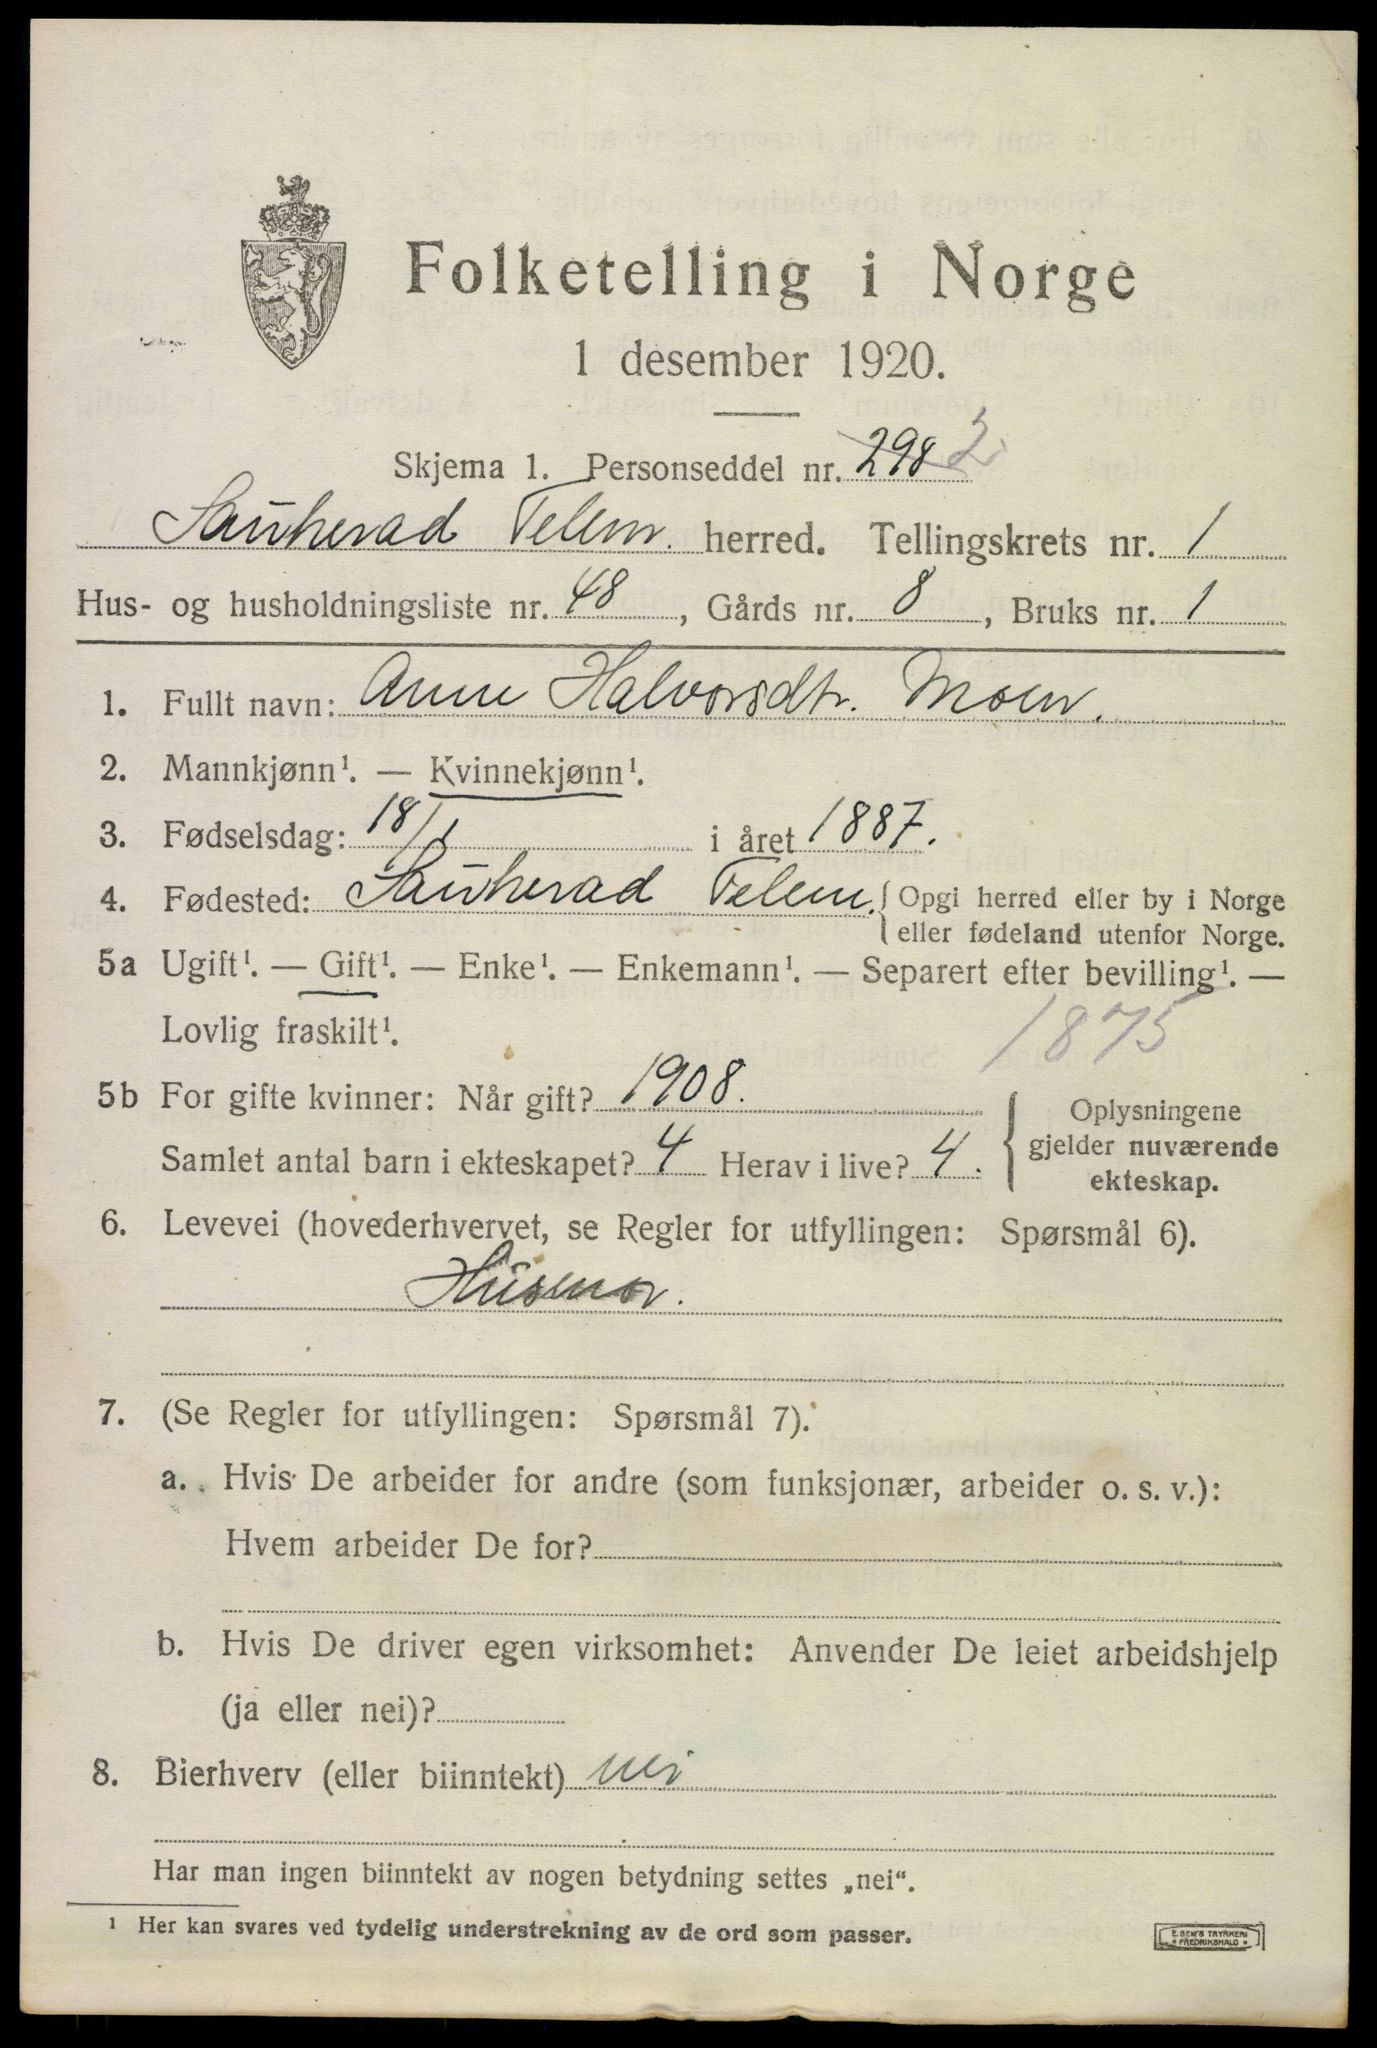 Folketelling i Norge
1 desember 1920.
Skjema 1. Personseddel nr. 298 2
Sauherad Telem. herred. Tellingskrets nr. 1
Hus- og husholdningsliste nr. 48, Gårds nr. 8, Bruks nr. 1
1. Fullt navn: Anne Halvorsdtr. Moen.
2. Mannkjønn¹. — Kvinnekjønn¹.
3. Fødselsdag: 18/1 i året 1887.
4. Fødested: Sauherad Telem. { Opgi herred eller by i Norge
eller fødeland utenfor Norge.
5a Ugift¹. — Gift¹. — Enke¹. — Enkemann¹. — Separert efter bevilling¹. —
Lovlig fraskilt¹. 1875
5b For gifte kvinner: Når gift? 1908.
Samlet antal barn i ekteskapet? 4 Herav i live? 4.
{ Oplysningene
gjelder nuværende
ekteskap.
6. Levevei (hovederhvervet, se Regler for utfyllingen: Spørsmål 6).
Husmor.
7. (Se Regler for utfyllingen: Spørsmål 7).
a. Hvis De arbeider for andre (som funksjonær, arbeider o. s. v.):
Hvem arbeider De for?
b. Hvis De driver egen virksomhet: Anvender De leiet arbeidshjelp
(ja eller nei)?
8. Bierhverv (eller biinntekt) nei
Har man ingen biinntekt av nogen betydning settes „nei“.
¹ Her kan svares ved tydelig understrekning av de ord som passer.
E. SEM'S TRYKKERI
FREDRIKSHALD